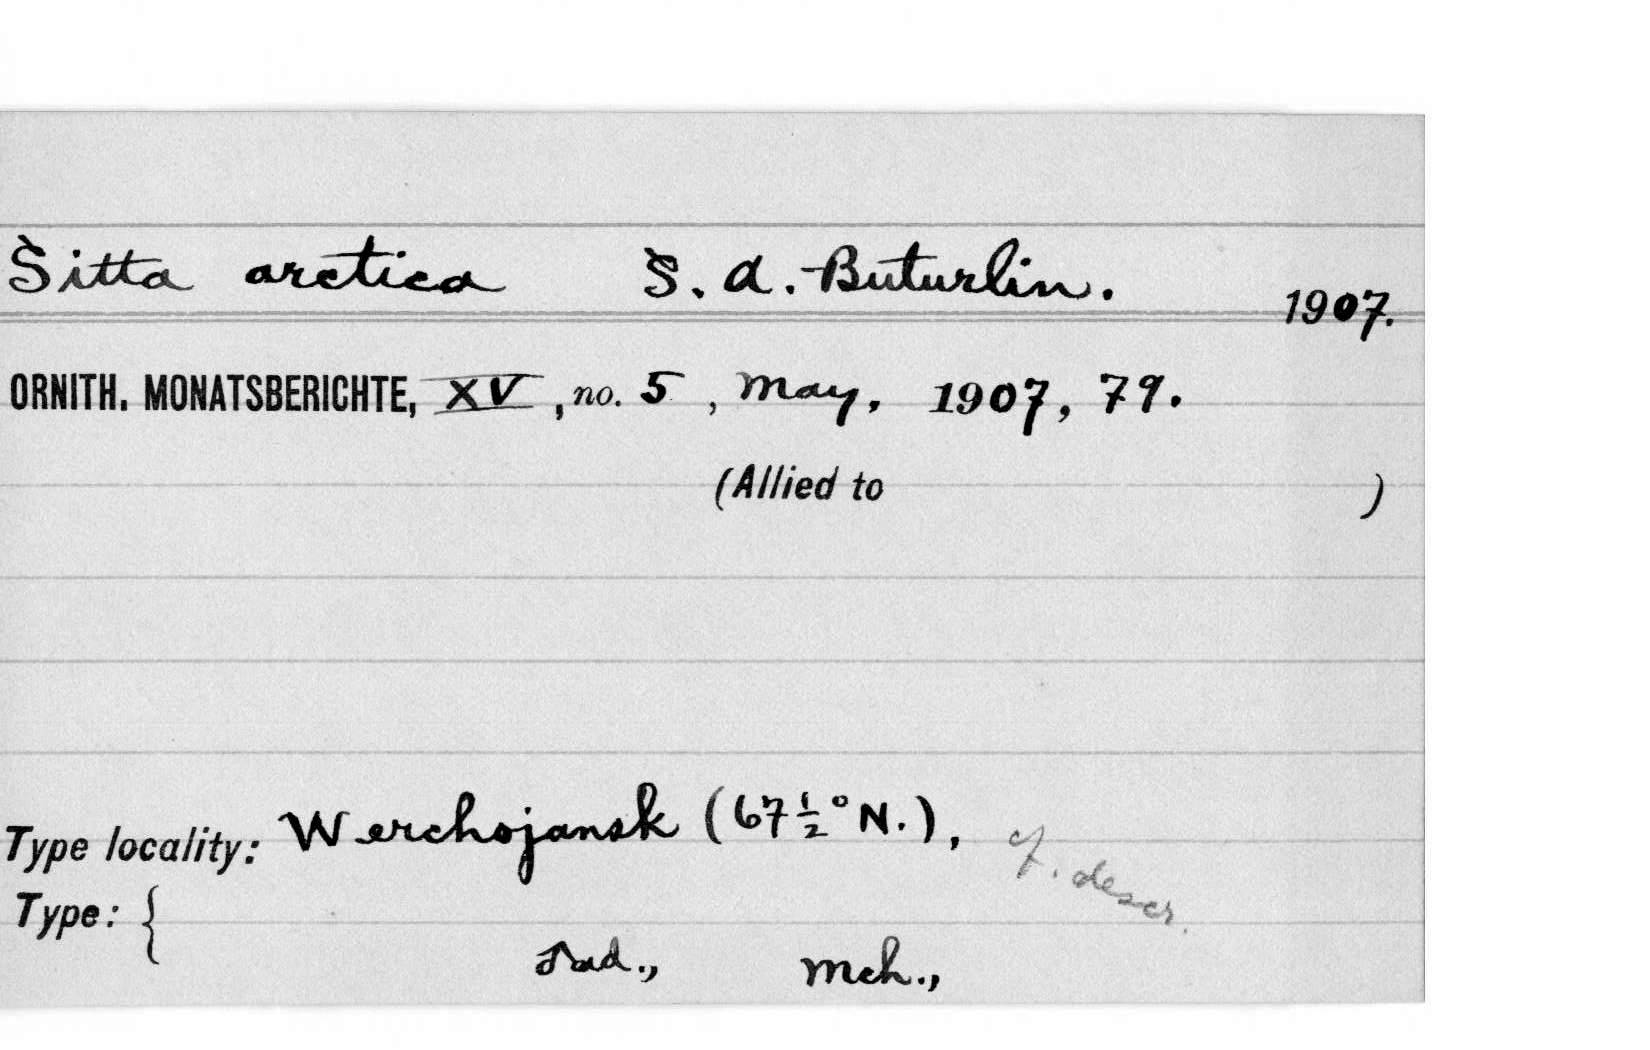 Sitta arctica S. A. Buturlin. 1907.
ORNITH. MONATSBERICHTE, XV, no. 5, May, 1907, 79.
(Allied to )
Type locality: Werchojansk (67½° N.), cf. descr.
Type: {
♂ad., Mch.,